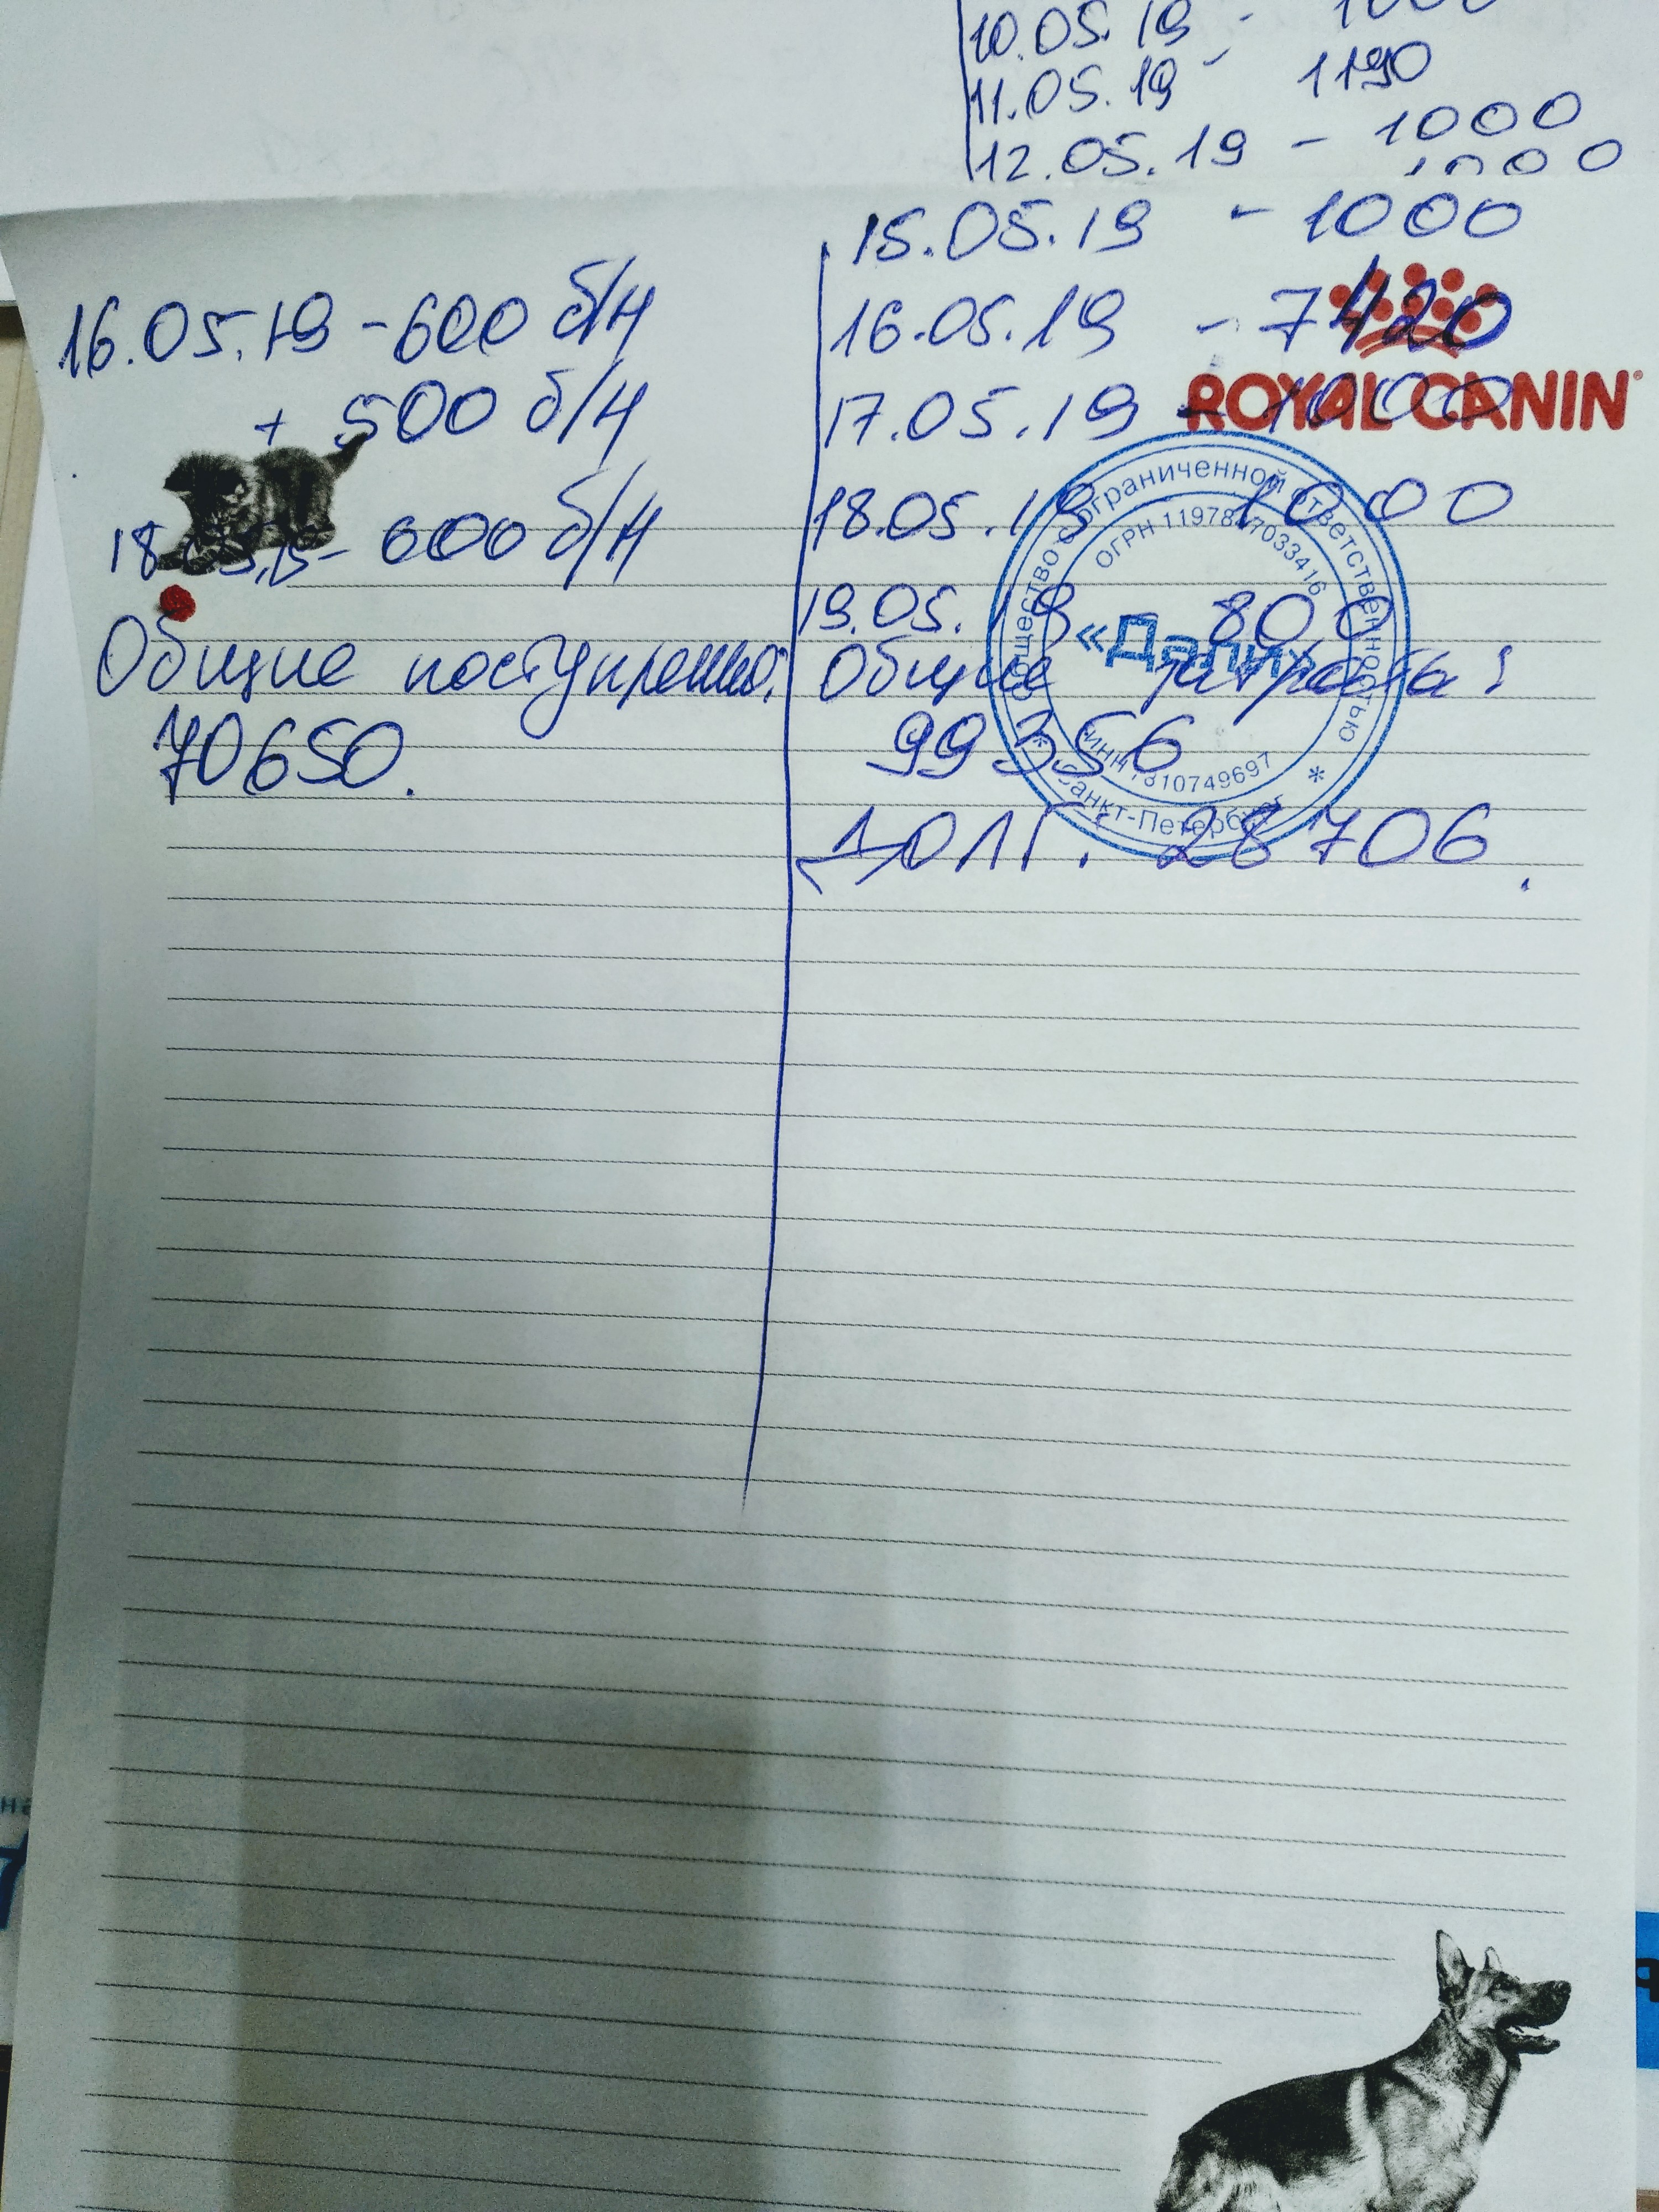 10.05.19 -
11.05.19 - 1190
12.05.19 - 1000
15.05.19 - 1000
16.05.19 - 600 б/н
16.05.19 - 7420
+ 500 б/н
17.05.19 - 1000
ROYAL CANIN
18 - 600 б/н
18.05.19 1000
19.05.19 800
Общие поступления:
Общие затраты:
70650.
99356
Долг: 28706.
Общество с ограниченной ответственностью
ОГРН 33416
«Дали»
ИНН 7810749697
* Санкт-Петербург *